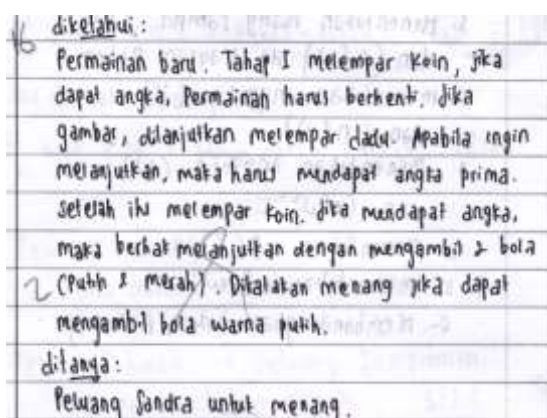 diketahui :
Permainan baru. Tahap I melempar koin, jika
dapat angka, Permainan harus berhenti, Jika
gambar, dilanjutkan melempar dadu. Apabila ingin
melanjutkan, maka harus mendapat angka prima.
setelah itu melempar koin. Jika mendapat angka,
maka berhak melanjutkan dengan mengambil 2 bola
2 (Putih & merah). Dikatakan menang jika dapat
mengambil bola warna putih.
ditanya :
Peluang Sandra untuk menang.